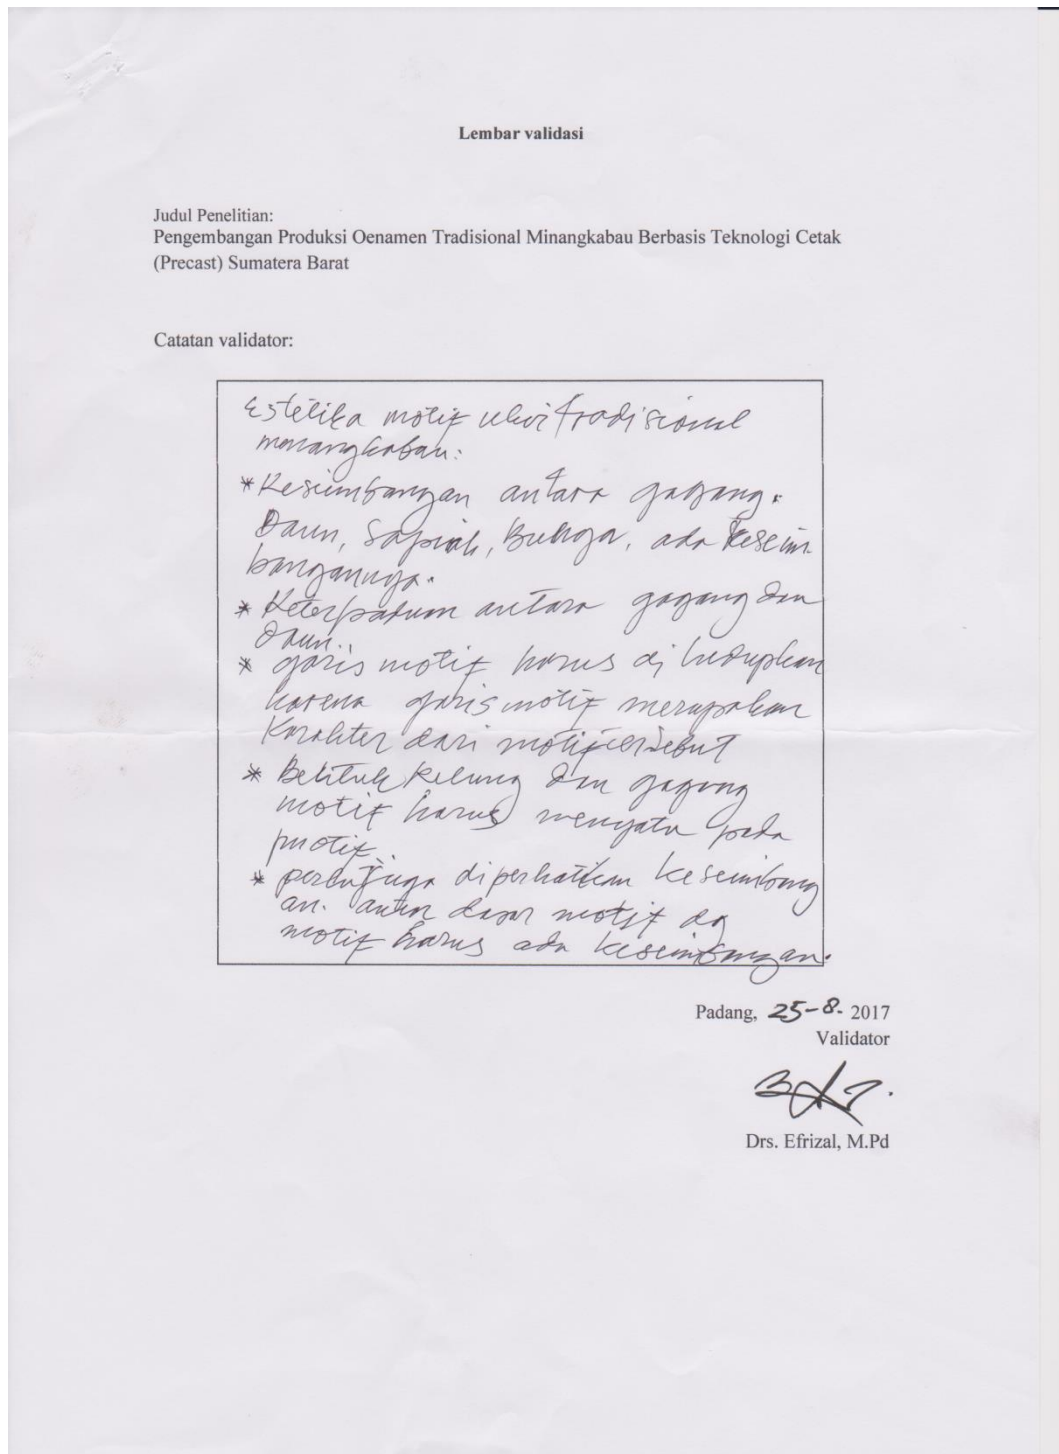 Lembar validasi
Judul Penelitian:
Pengembangan Produksi Oenamen Tradisional Minangkabau Berbasis Teknologi Cetak
(Precast) Sumatera Barat
Catatan validator:
Estetika motif ukir tradisional
minangkabau:
* Keseimbangan antara gagang.
Daun, Sapiah, Bunga, ada keseim
bangannya.
* Keterpaduan antara gagang dan
daun..
* garis motif harus di hidupkan
karena garis motif merupakan
karakter dari motif tersebut
* Bentuk relung dan gagang
motif harus menyatu pada
motif.
* perlu juga diperhatikan keseimbang
an. antar dasar motif dg
motif harus ada keseimbangan.
Padang, 25-8- 2017
Validator
Drs. Efrizal, M.Pd